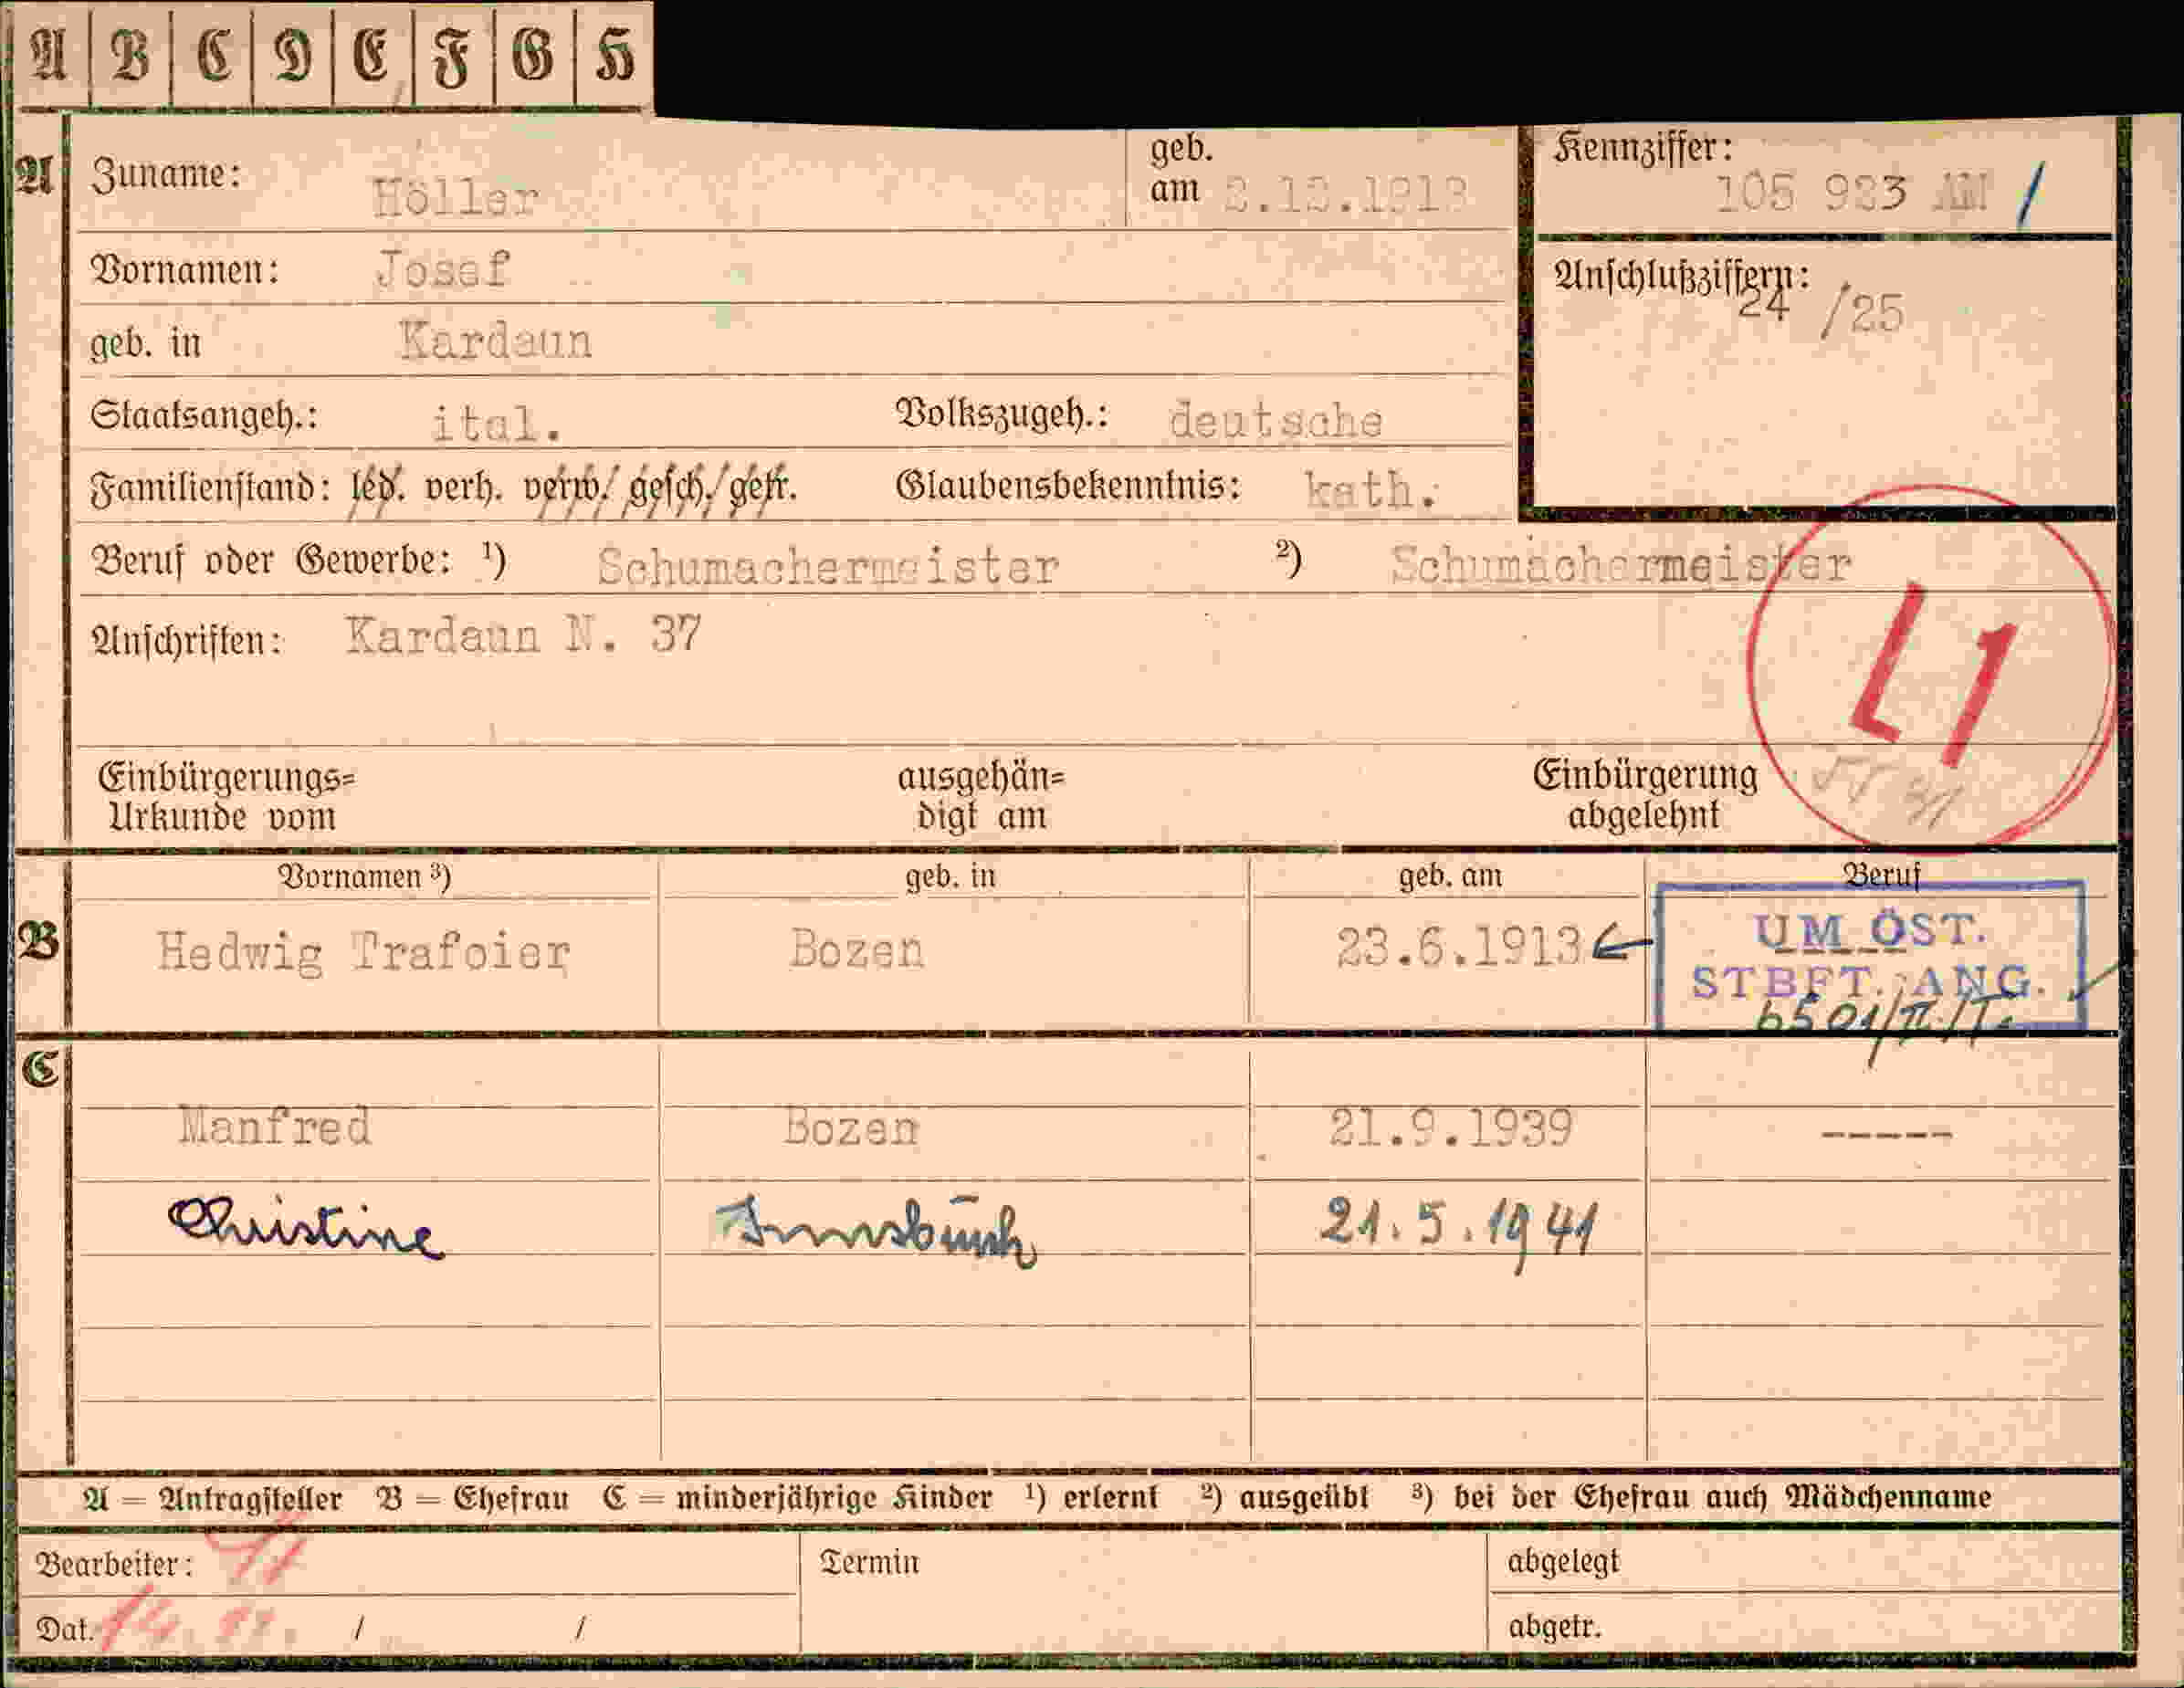 A B C D E F G H
A Zuname: Höller geb. am 2.12.1913 Kennziffer: 105 923 AM /
Vornamen: Josef Anschlußziffern: 24 /25
geb. in Kardaun
Staatsangeh.: ital. Volkszugeh.: deutsche
Familienstand: led. verh. verw. gesch. getr. Glaubensbekenntnis: kath.
Beruf oder Gewerbe: ¹) Schumachermeister ²) Schumachermeister
Anschriften: Kardaun N. 37
L1
Einbürgerungs= ausgehän= Einbürgerung
Urkunde vom digt am abgelehnt
Vornamen ³) geb. in geb. am Beruf
B Hedwig Trafoier Bozen 23.6.1913
UM ÖST.
STBFT. ANG.
6501/II/T.
C
Manfred Bozen 21.9.1939 -----
Christine Innsbruck 21.5.1941
A = Antragsteller B = Ehefrau C = minderjährige Kinder ¹) erlernt ²) ausgeübt ³) bei der Ehefrau auch Mädchenname
Bearbeiter: Termin abgelegt
Dat. / / abgetr.